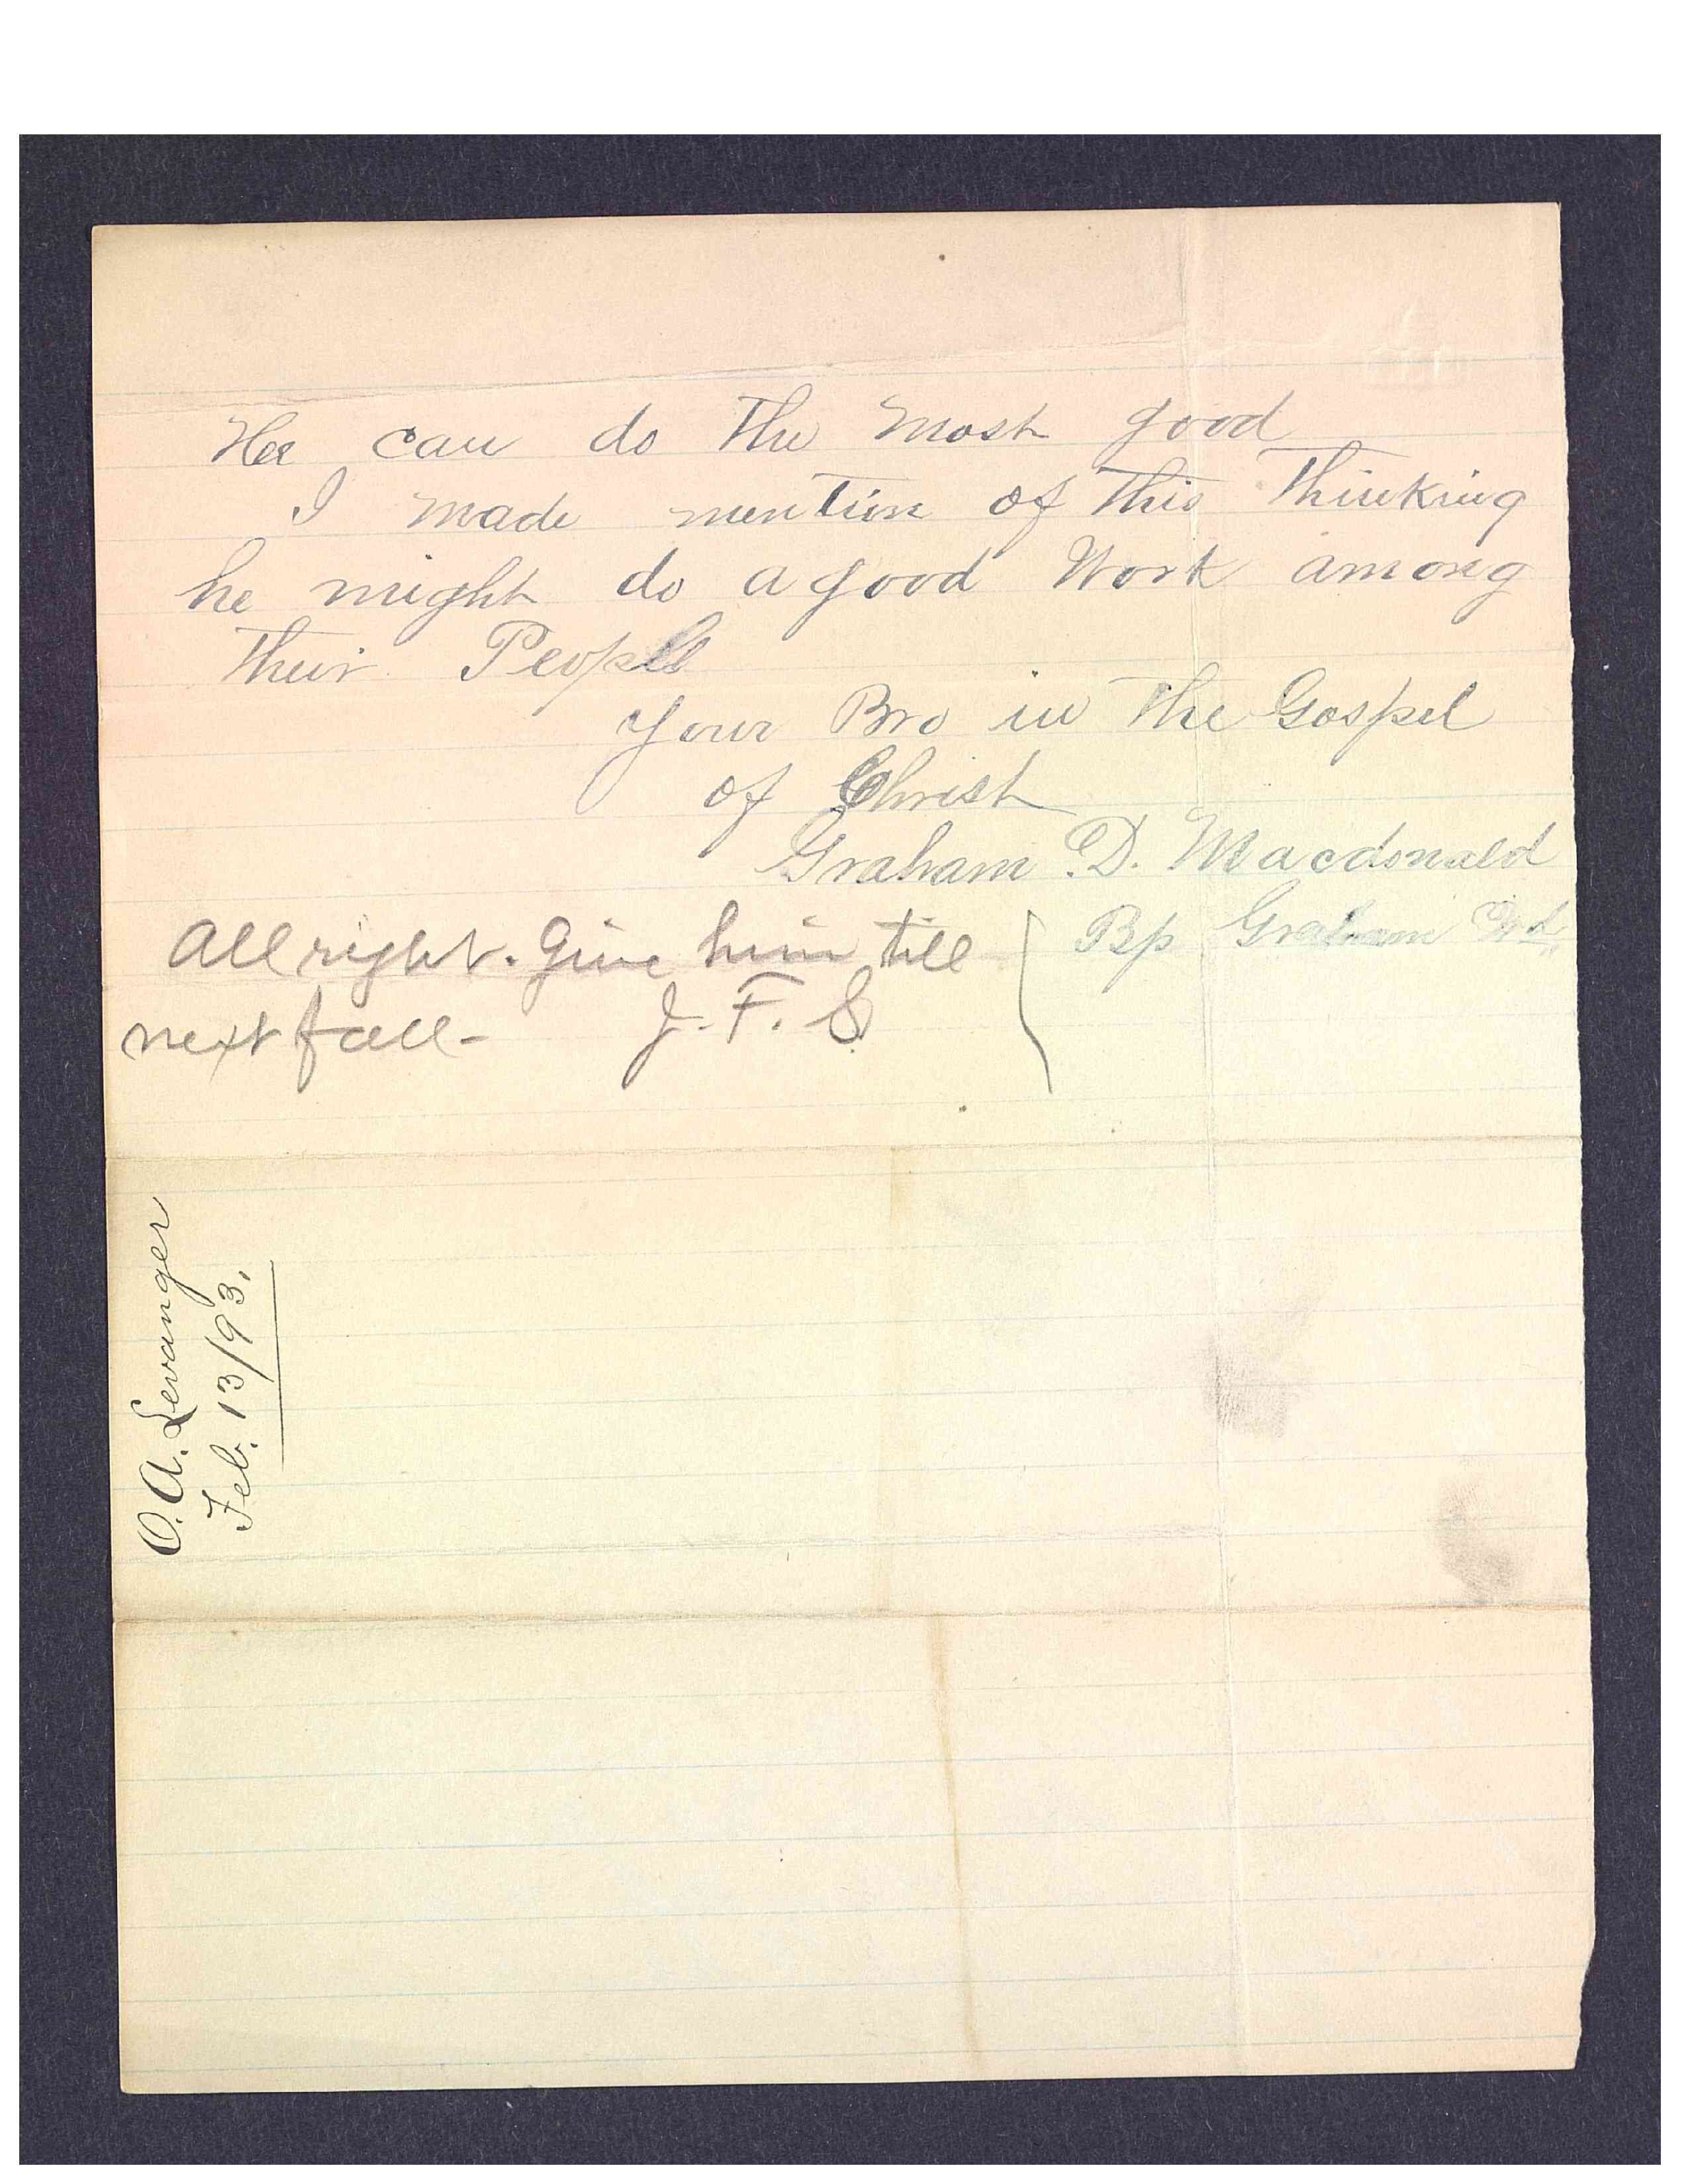 He can do the most good
I made mention of this Thinking
he might do a good Work among
their People
Your Bro in the Gospel
of Christ
Graham D. Macdonald
Bp Graham Wd
All right. Give him till
next fall- J. F. S
O. A. Levanger
Feb. 13/93.